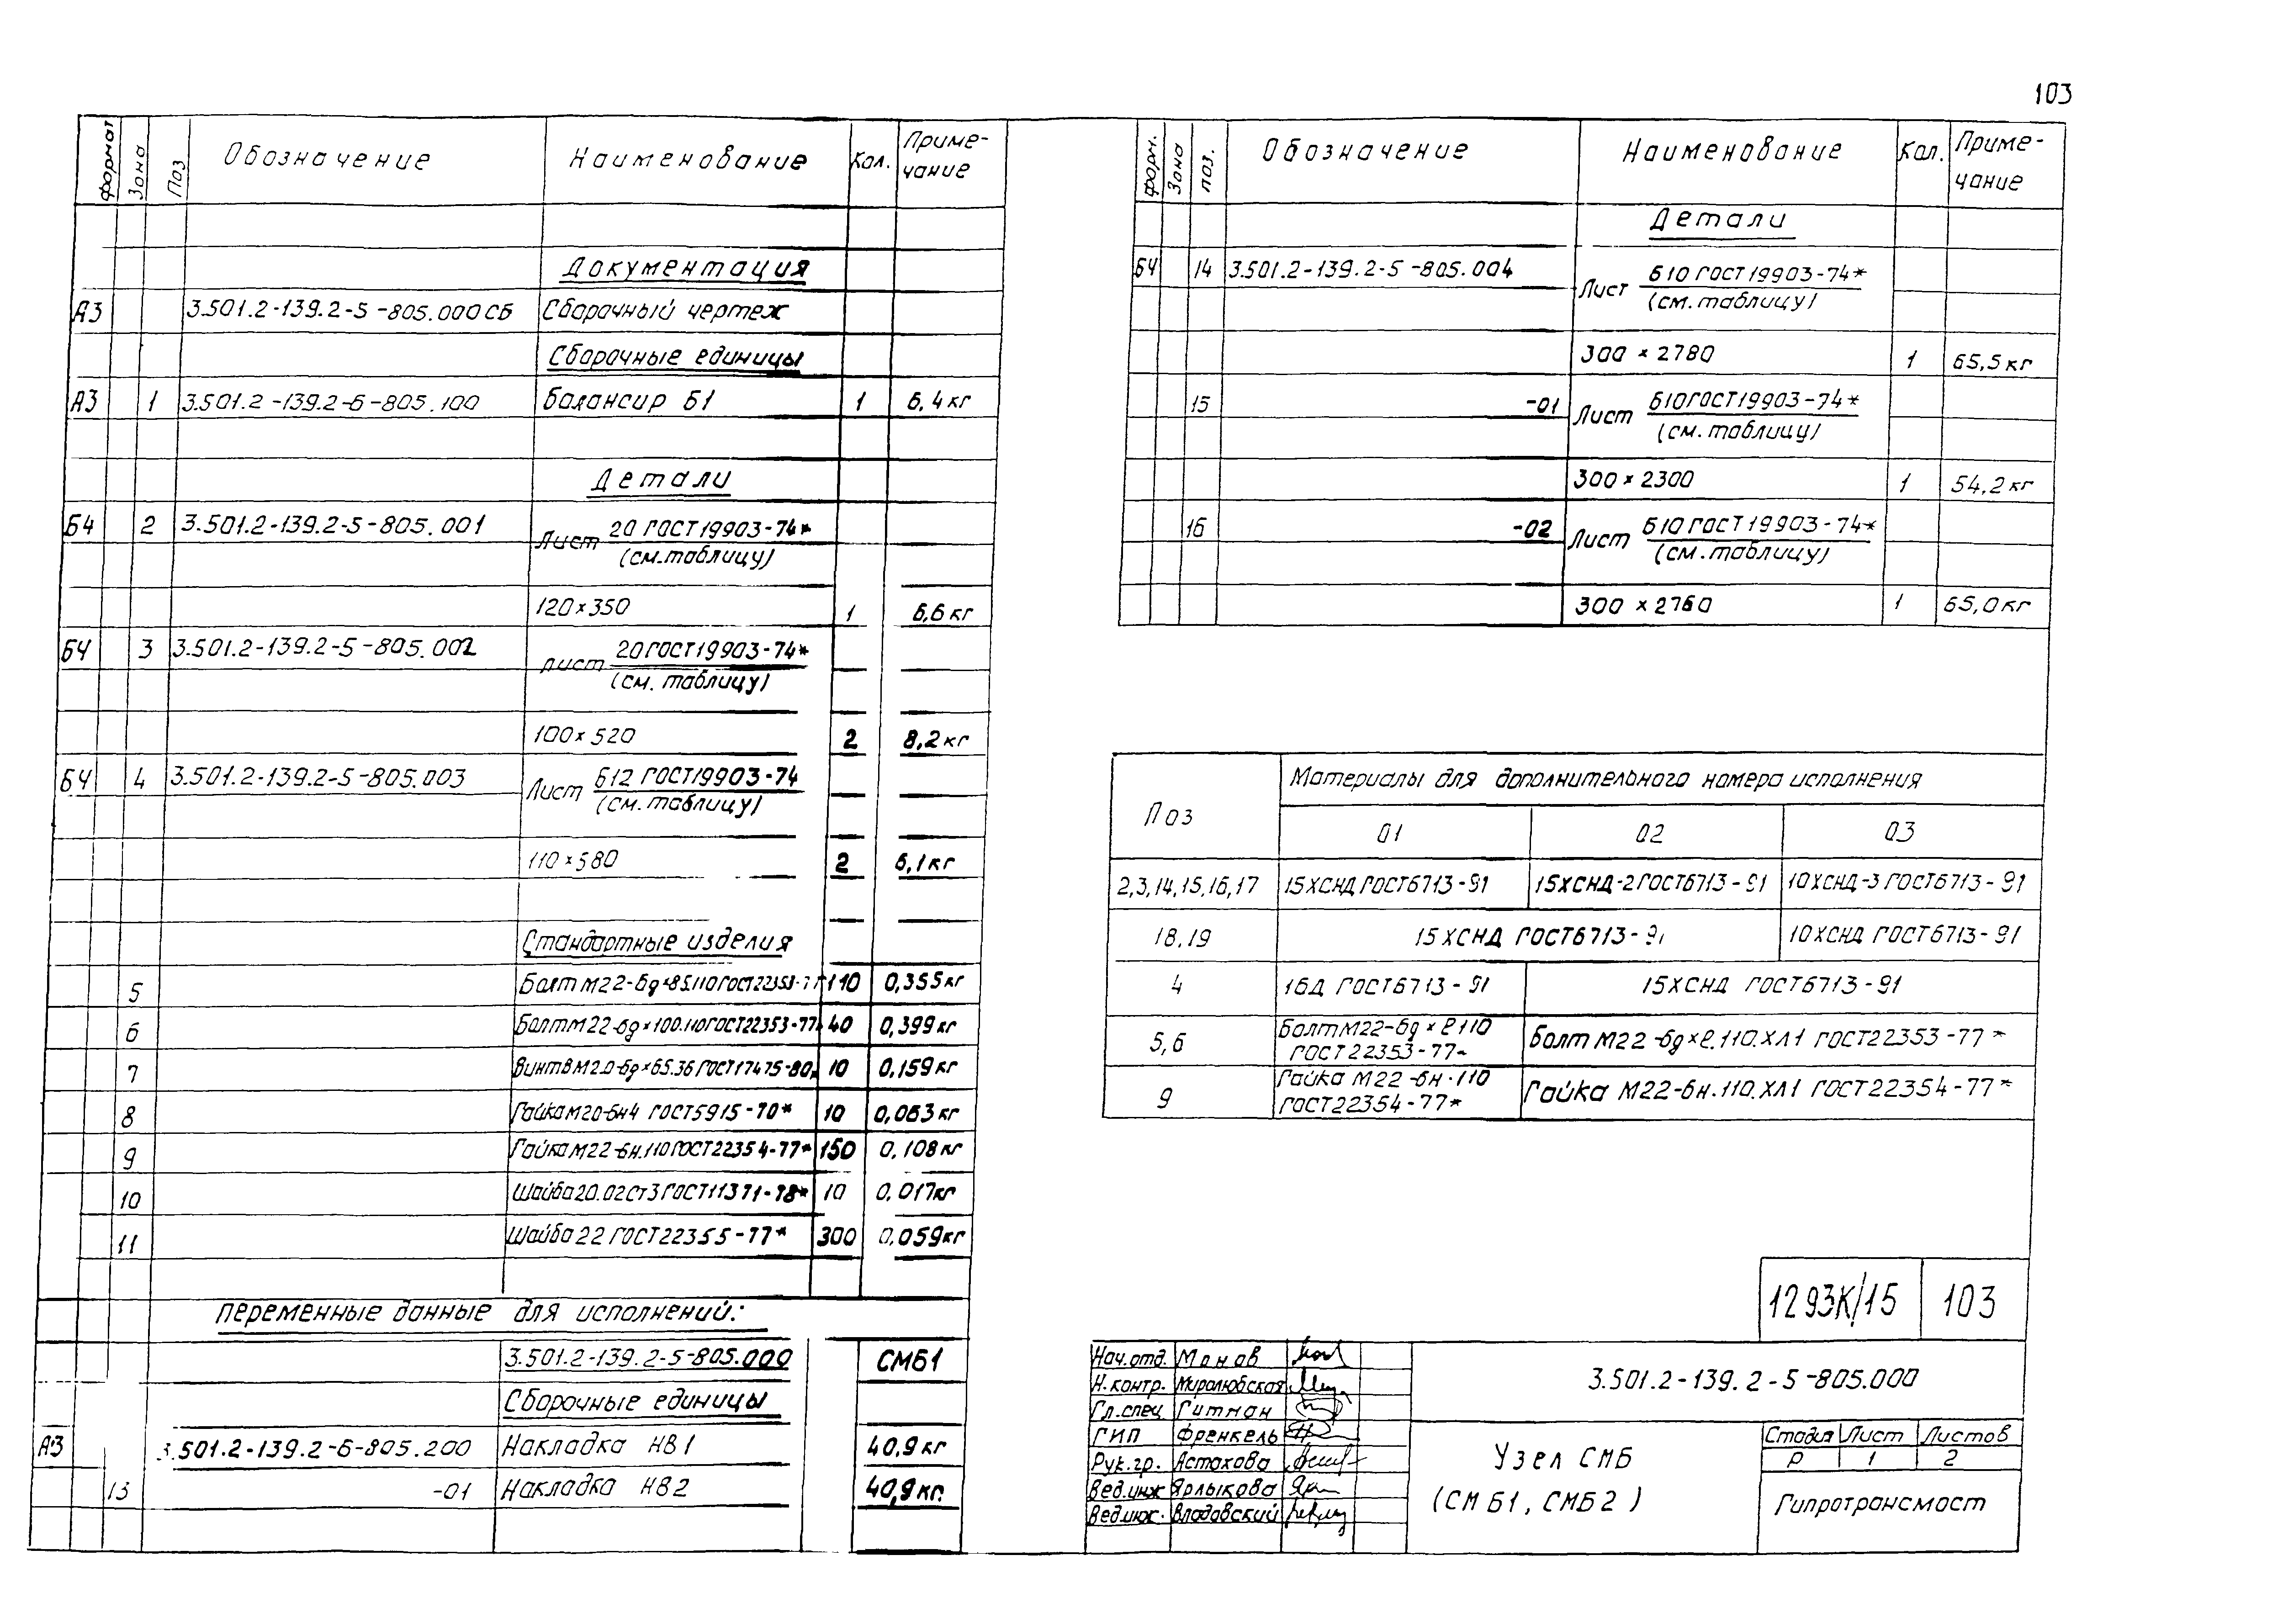 103
формат Зона Поз Обозначение Наименование Кол. Приме-
чание
Документация
А3 3.501.2-139.2-5-805.000СБ Сборочный чертеж
Сборочные единицы
А3 1 3.501.2-139.2-6-805.100 балансир Б1 1 6,4кг
Детали
Б4 2 3.501.2-139.2-5-805.001 Лист 20 ГОСТ19903-74*
(см.таблицу)
120×350 1 6,6кг
БЧ 3 3.501.2-139.2-5-805.002 лист 20ГОСТ19903-74*
(см. таблицу)
100×520 2 8,2кг
БЧ 4 3.501.2-139.2-5-805.003 Лист Б12 ГОСТ19903-74
(см. таблицу)
110×580 2 6,1кг
Стандартные изделия
5 Болт М22-6g×85.110ГОСТ22353- 110 0,355кг
6 БолтМ22-6g×100.110ГОСТ22353-77* 40 0,399кг
7 ВинтВМ20-6g×65.36ГОСТ17475-80 10 0,159кг
8 ГайкаМ20-6Н4 ГОСТ5915-70* 10 0,063кг
9 ГайкаМ22-6Н.110ГОСТ22354-77* 150 0,108кг
10 Шайба20.02Ст3ГОСТ11371-78* 10 0,017кг
11 Шайба22 ГОСТ22355-77* 300 0,059кг
переменные данные для исполнений:
3.501.2-139.2-5-805.000 СМБ1
Сборочные единицы
А3 3.501.2-139.2-6-805.200 Накладка НВ1 40,9кг
13 -01 Накладка НВ2 40,9кг.
форм. Зона поз. Обозначение Наименование Кол. Приме-
чание
Детали
БЧ 14 3.501.2-139.2-5-805.004 Лист Б10 ГОСТ19903-74*
(см.таблицу)
300×2780 1 65,5кг
15 -01 Лист Б10ГОСТ19903-74*
(см.таблицу)
300×2300 1 54,2кг
16 -02 Лист Б10ГОСТ19903-74*
(см.таблицу)
300×2760 1 65,0кг
Поз Материалы для дополнительного номера исполнения
01 02 03
2,3,14,15,16,17 15ХСНДГОСТ6713-91 15ХСНД-2ГОСТ6713-91 10ХСНД-3ГОСТ6713-91
18,19 15ХСНД ГОСТ6713-91 10ХСНД ГОСТ6713-91
4 16Д ГОСТ6713-91 15ХСНД ГОСТ6713-91
5,6 БолтМ22-6g×ℓ110
ГОСТ22353-77*
Болт М22-6g×ℓ.110.ХЛ1 ГОСТ22353-77*
9 Гайка М22-6Н.110
ГОСТ22354-77*
Гайка М22-6Н.110.ХЛ1 ГОСТ22354-77*
1293К/15 103
Нач.отд. Монов
Н.контр. Миролюбская
Гл.спец Гитман
ГИП Френкель
Рук.гр. Астахова
Вед.инж Ярлыкова
Вед.инж. Владавский
3.501.2-139.2-5-805.000
Узел СМБ
(СМБ1, СМБ2)
Стадия Лист Листов
Р 1 2
Гипротрансмост